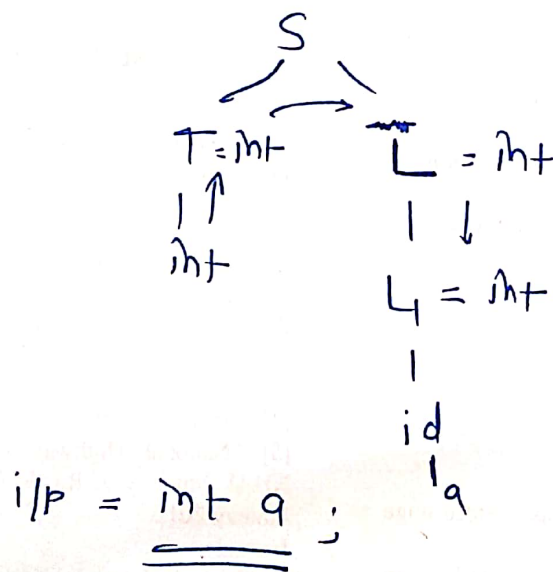 S
T = int L = int
int L1 = int
id
a
i/p = int a ;